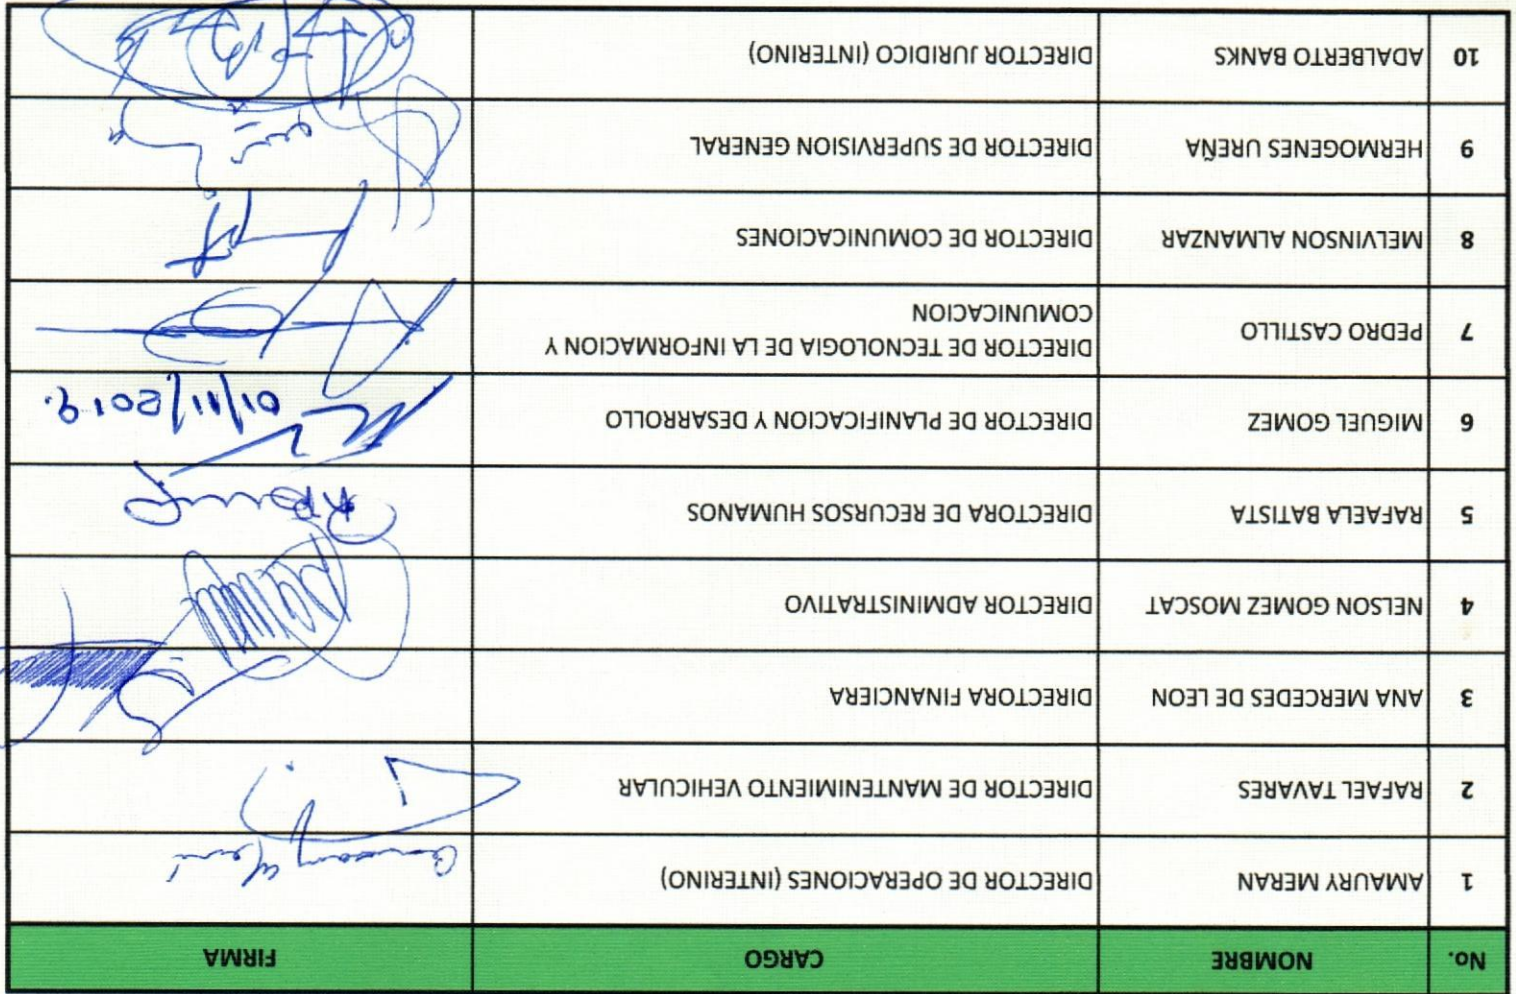 No. NOMBRE CARGO FIRMA
1 AMAURY MERAN DIRECTOR DE OPERACIONES (INTERINO)
2 RAFAEL TAVARES DIRECTOR DE MANTENIMIENTO VEHICULAR
3 ANA MERCEDES DE LEON DIRECTORA FINANCIERA
4 NELSON GOMEZ MOSCAT DIRECTOR ADMINISTRATIVO
5 RAFAELA BATISTA DIRECTORA DE RECURSOS HUMANOS
6 MIGUEL GOMEZ DIRECTOR DE PLANIFICACION Y DESARROLLO 01/11/2019.
7 PEDRO CASTILLO DIRECTOR DE TECNOLOGIA DE LA INFORMACION Y
COMUNICACION
8 MELVINSON ALMANZAR DIRECTOR DE COMUNICACIONES
9 HERMOGENES UREÑA DIRECTOR DE SUPERVISION GENERAL
10 ADALBERTO BANKS DIRECTOR JURIDICO (INTERINO)